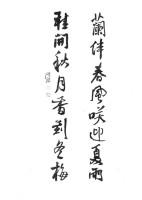 蘭伴春風咲迎夏雨
鞋開秋月香到冬梅